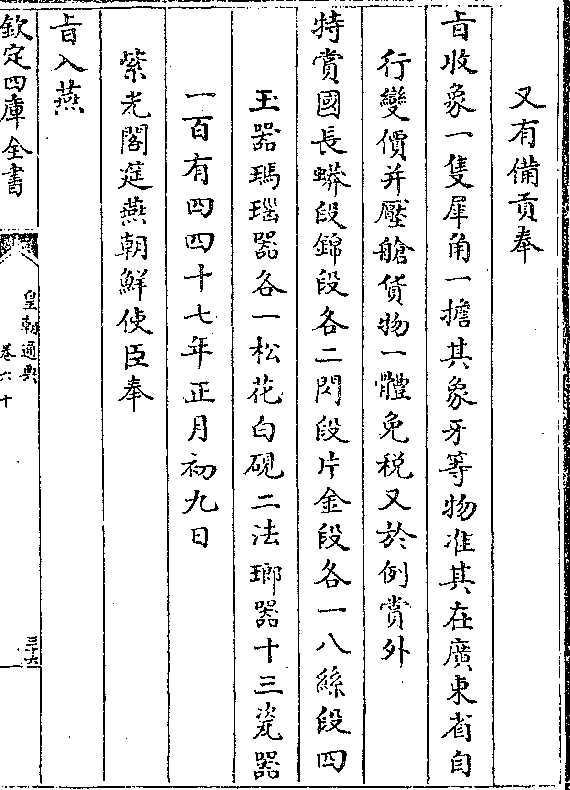 又有備貢奉
旨收象一隻犀角一擔其象牙等物准其在廣東省自
行變價并壓艙貨物一體免税又於例賞外
特賞國長蟒段錦段各二閃段片金段各一八絲段四
玉器瑪瑙器各一松花白硯二法瑯器十三瓷器
一百有四四十七年正月初九日
紫光閣筵燕朝鮮使臣奉
旨入燕
欽定四庫全書
皇朝通典
卷六十
三十六